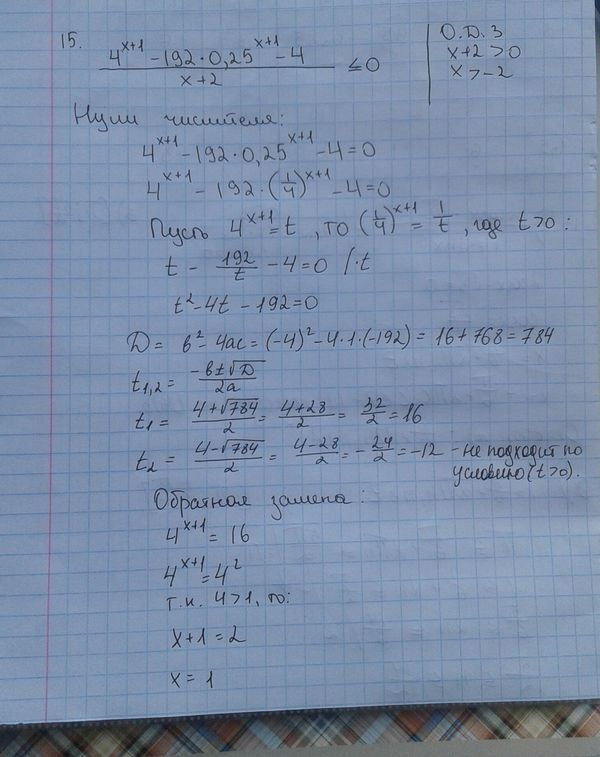 15. (4^(x+1) - 192 · 0,25^(x+1) - 4)/(x+2) ≤ 0
О.D.З
x+2 > 0
x > -2
Нули числителя:
4^(x+1) - 192 · 0,25^(x+1) - 4 = 0
4^(x+1) - 192 · (1/4)^(x+1) - 4 = 0
Пусть 4^(x+1) = t, то (1/4)^(x+1) = 1/t, где t>0:
t - 192/t - 4 = 0 |·t
t² - 4t - 192 = 0
D = b² - 4ac = (-4)² - 4·1·(-192) = 16 + 768 = 784
t₁,₂ = (-b±√D)/2a
t₁ = (4+√784)/2 = (4+28)/2 = 32/2 = 16
t₂ = (4-√784)/2 = (4-28)/2 = -24/2 = -12 - не подходит по
условию (t>0).
Обратная замена:
4^(x+1) = 16
4^(x+1) = 4²
т.к. 4>1, то:
x+1 = 2
x = 1